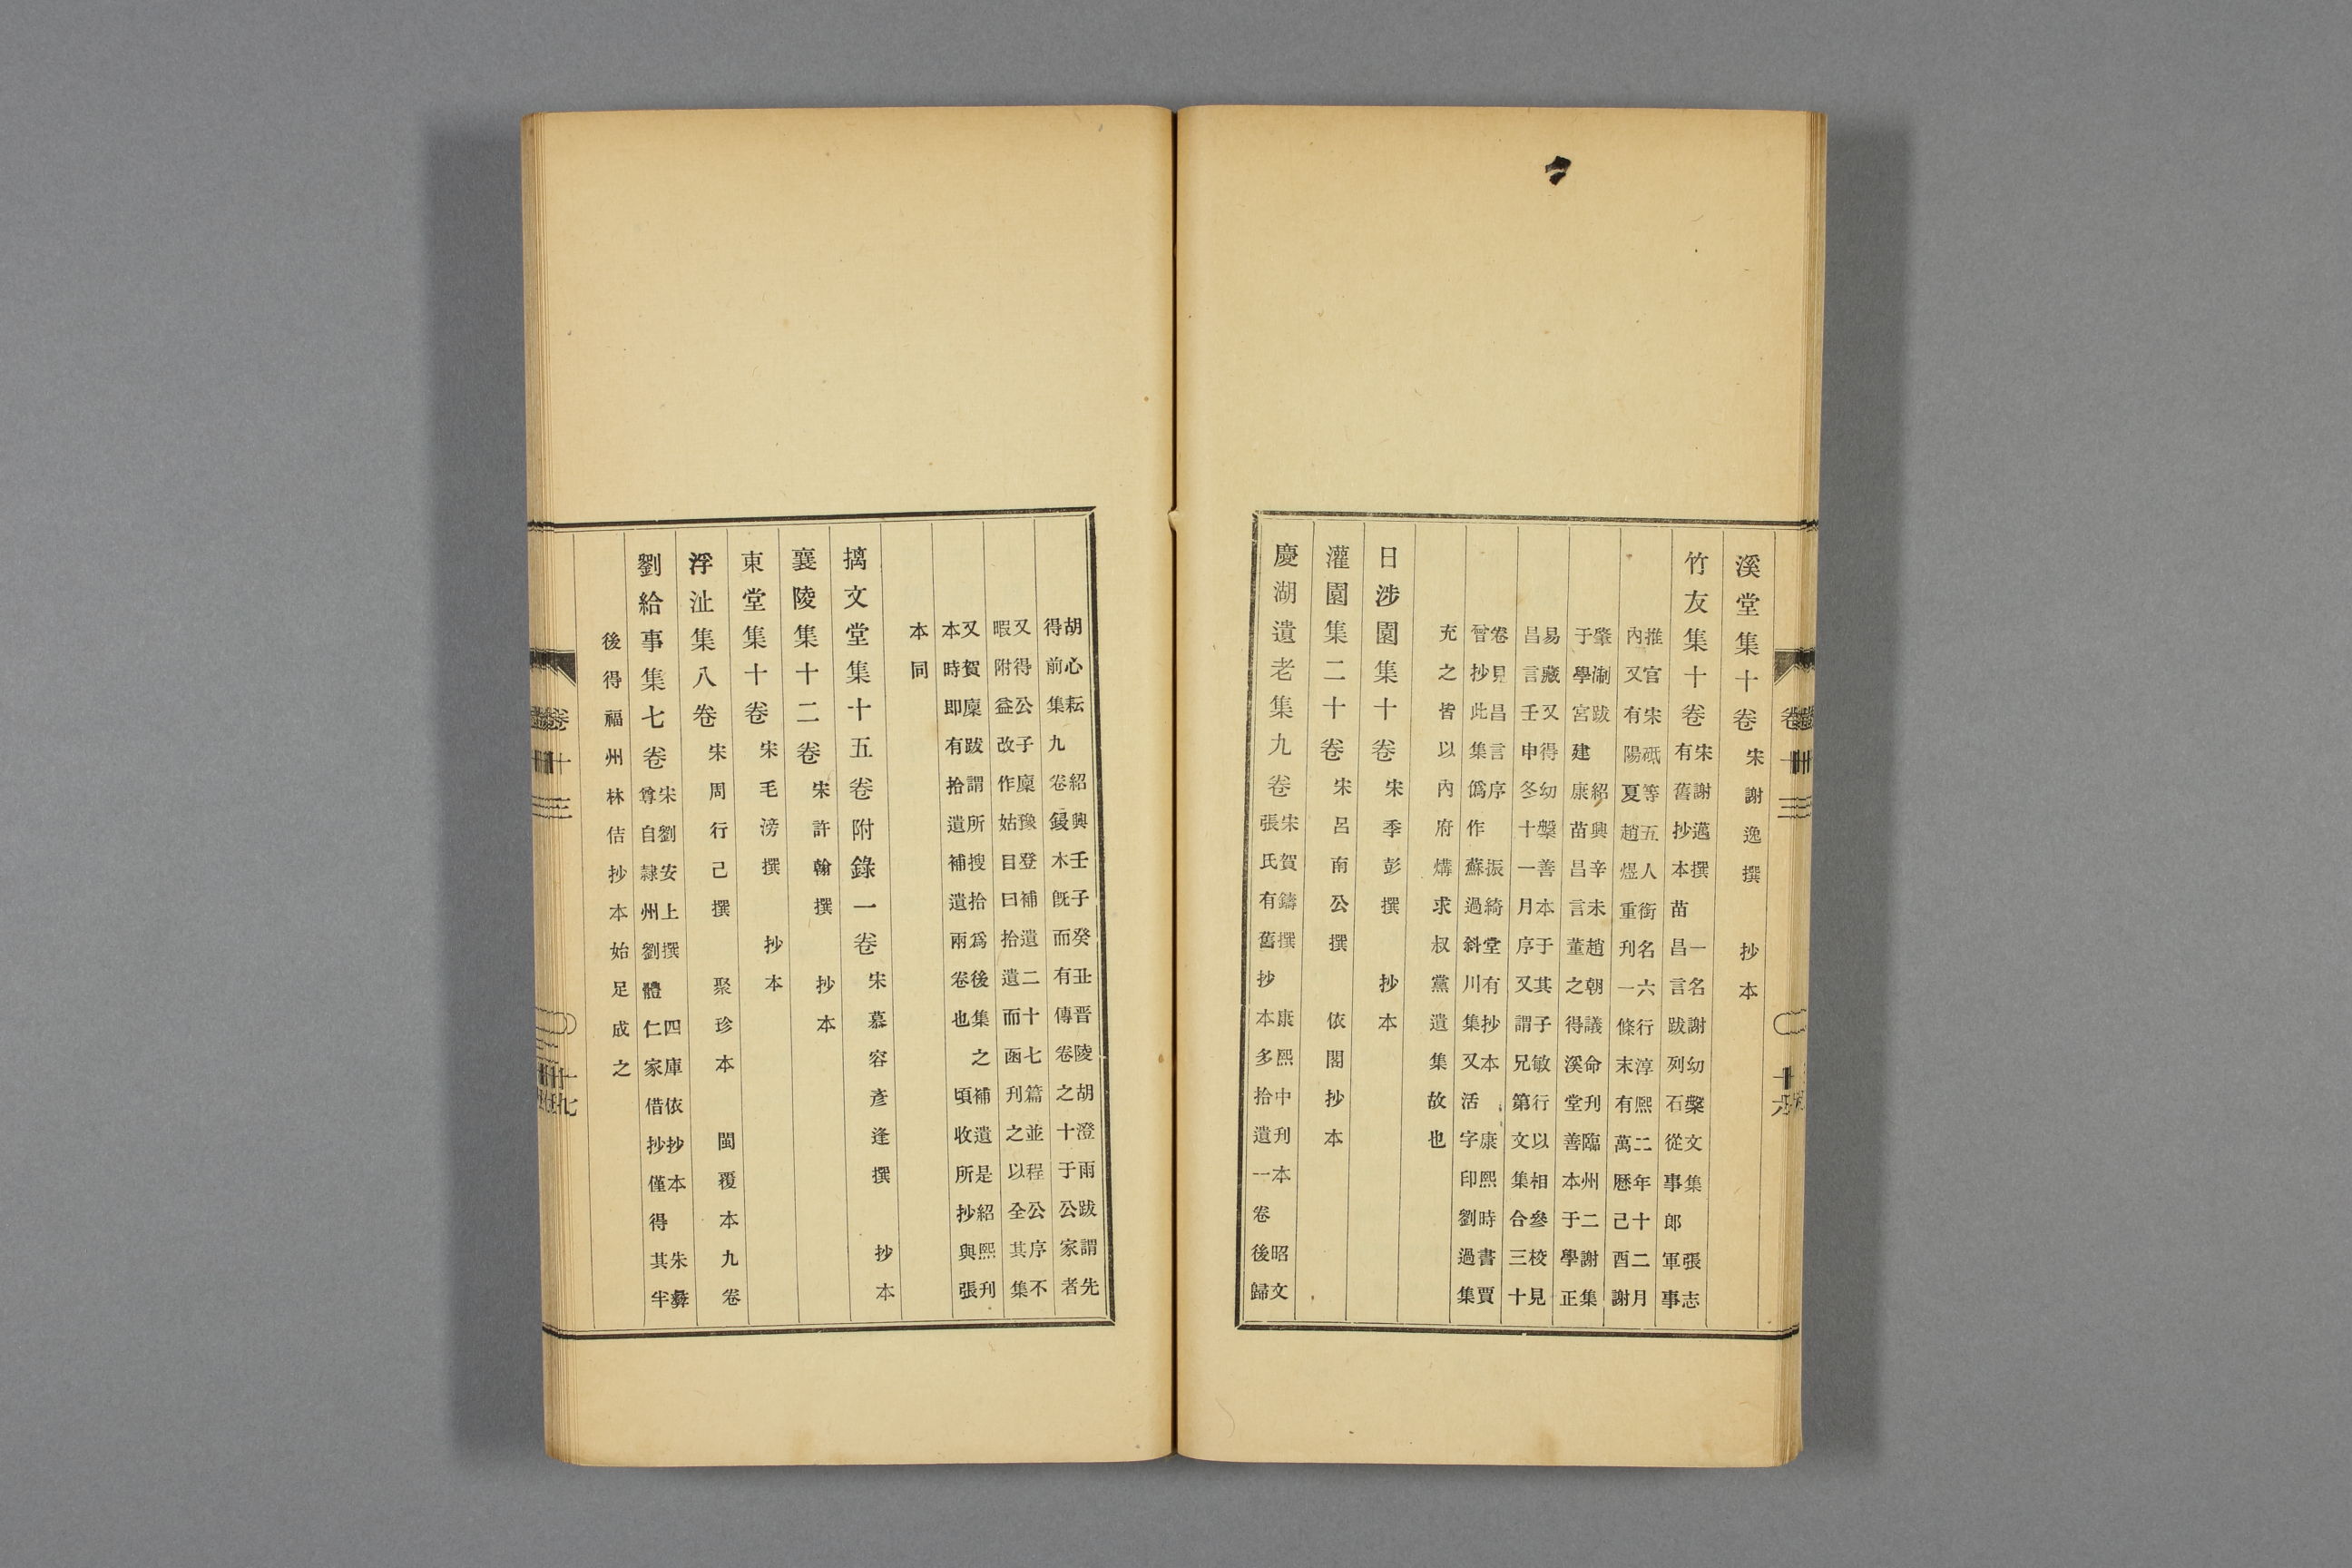 溪堂集十卷 宋謝逸撰 抄本
竹友集十卷 宋謝邁撰 一名謝幼槃文集 張志
有舊抄本苗昌言跋列石從事郎軍事
推官宋砥等五人銜名六行淳熙二年十二月
內又有陽夏趙煜重刊一條末有萬曆己酉謝
肇淛跋 紹興辛未趙朝議命刊臨州二謝集
于學宮建康苗昌言董之得溪堂善本于學正
易藏又得幼槃善本于其子敏行以相參校見
昌言壬申冬十一月序又謂兄第文集合三十
卷見昌言序 振綺堂有抄本 康熙時書賈
曾抄此集僞作蘇過斜川集又活字印劉過集
充之皆以內府購求叔黨遺集故也
日涉園集十卷 宋季彭撰 抄本
灌園集二十卷 宋呂南公撰 依閣抄本
慶湖遺老集九卷 宋賀鑄撰 康熙中刊本 昭文
張氏有舊抄本多拾遺一卷後歸
胡心耘 紹興壬子癸丑晋陵胡澄雨跋謂先
得前集九卷鋟木既而有傳卷之十于公家者
又得公子廩豫登補遺二十七篇並程公序不
暇附益改作姑目曰拾遺而函刊之以全其集
又賀廩跋謂所搜拾爲後集之補遺是紹熙刊
本時即有拾遺補遺兩卷也 頃收所抄與張
本同
摛文堂集十五卷附錄一卷 宋慕容彥逢撰 抄本
襄陵集十二卷 宋許翰撰 抄本
東堂集十卷 宋毛滂撰 抄本
浮沚集八卷 宋周行己撰 聚珍本 閩覆本九卷
劉給事集七卷 宋劉安上撰 四庫依抄本 朱彝
尊自隸州劉體仁家借抄僅得其半
後得福州林佶抄本始足成之